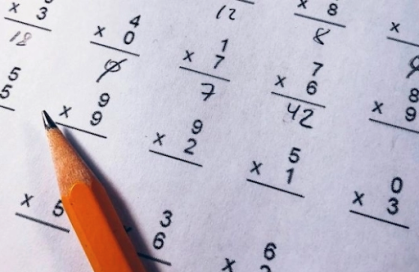 x 3
18
4
x 0
0
12
x 8
8
x
1
x 7
7
7
x 6
42
8
x 9
5
5
9
x 9
9
x 2
5
x 1
0
x 3
x 5
3
6
6
x